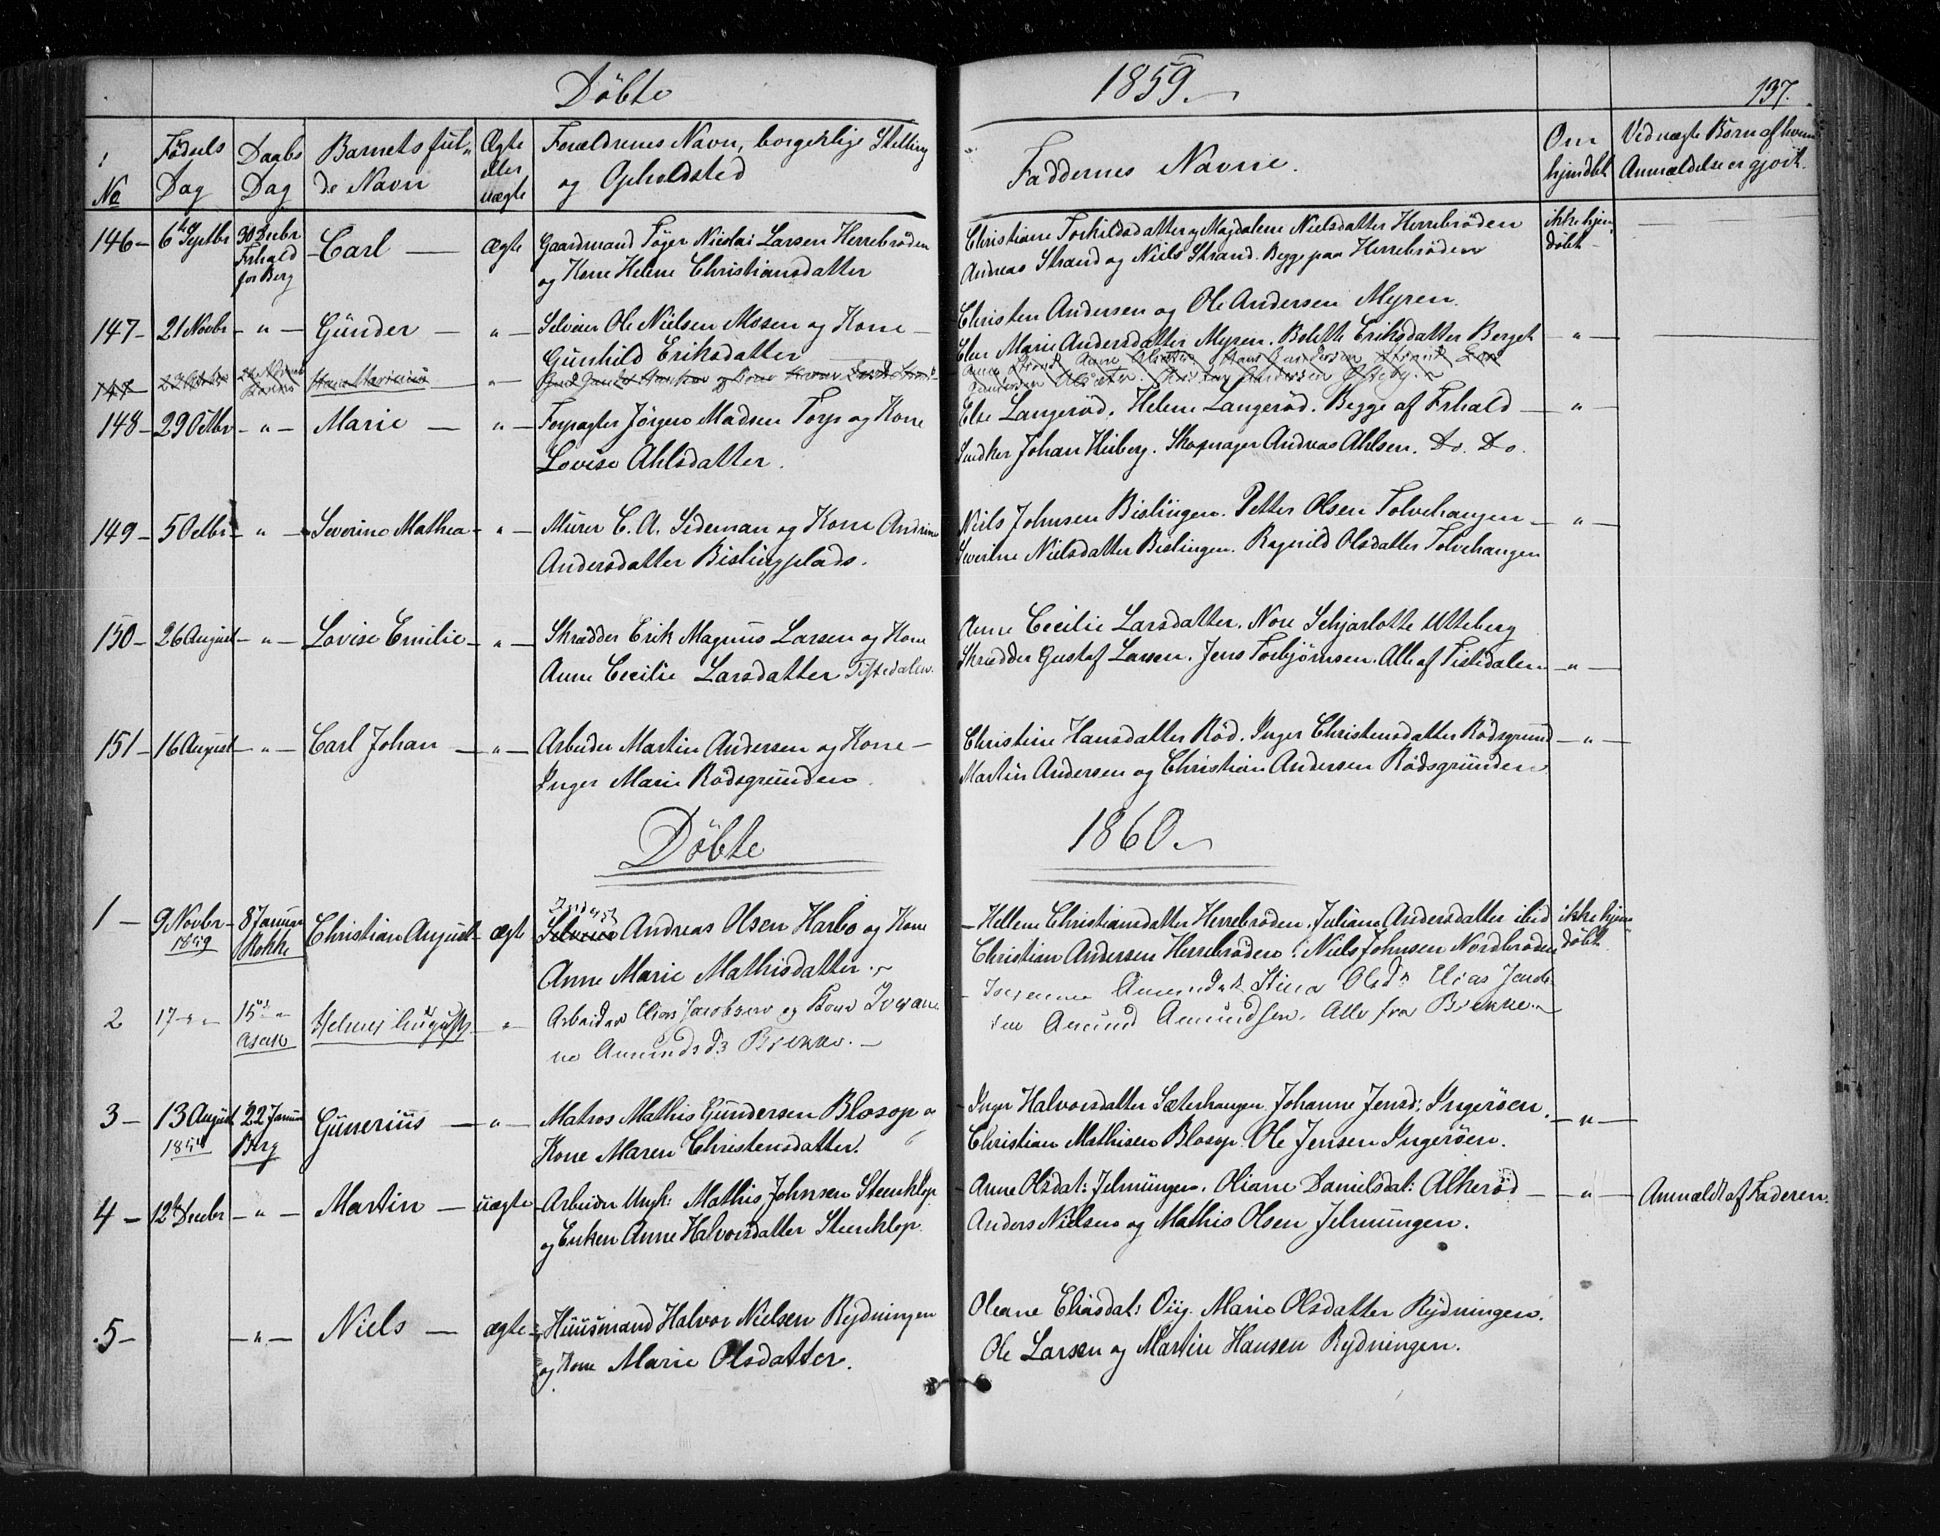 Döbte 1859. 137.
No
Födsels Dag
Daabs Dag
Barnets fulde Navn
Ægte eller uægte
Forældrenes Navn, borgerlige Stilling
og Opholdsted
Faddernes Navne.
Om hjemdöbt
Ved uægte Börn af hvem
Anmældelse er gjort.
146 – 6te Septbr 30 Decbr Frhald for Berg Carl – ægte Gaardmand Töger Nicolai Larsen Herrebröden
og Kone Helene Christiansdatter
Christiane Torkildsdatter og Magdalene Nielsdatter Herrebröden ikke hjemdöbt
Andreas Strand og Niels Strand. Begge paa Herrebröden
147 – 21 Novbr – " – Günder – " – Selveier Ole Nielsen Mosen og Kone –
Gunhild Eriksdatter
Christen Andersen og Ole Andersen Myren.
Elen Marie Andersdatter Myren. Bolette Eriksdatter Berget – " –
147
148 – 29 Octbr – " – Marie – " – Forpagter Jörgen Madsen Torp og Kone
Lovise Ahlsdatter.
Else Langeröd. Helene Langeröd. Begge af Frhald – " –
Snedker Johan Heiberg. Skomager Andreas Ahlsen. Do. Do.
149 – 5 Octbr – " – Severine Mathea – " – Murer C. A. Sedeman og Kone Andrine
Andersdatter Bislingplads.
Niels Johnsen Bislingen. Petter Olsen Tolvehaugen – " –
Severine Nielsdatter Bislingen. Ragnild Olsdatter Tolvehaugen
150 – 26 August – " – Lovise Emilie – " – Skrædder Erik Magnus Larsen og Kone
Anne Cecilie Larsdatter Tistedalen.
Anne Cecilie Larsdatter. Nore Schjarlotte Utteberg
Skrædder Gustaf Larsen. Jens Torbjörnsen. Alle af Tistedalen – " –
151 – 16 August – " – Carl Johan – " – Arbeider Martin Andersen og Kone –
Inger Marie Rödsgrunden.
Christine Hansdatter Röd. Inger Christensdatter Rödsgrund – " –
Martin Andersen og Christian Andersen Rödsgrunden
Döbte 1860.
1 – 9 Novbr 1859 8 Januar Rokke Christian August – ægte Andreas Olsen Harbo og Kone
Anne Marie Mathisdatter.
– Hellene Christiansdatter Herrebröden. Juliane Andersdatter ibid ikke hjemdöbt
Christian Andersen Herrebröden. Niels Johnsen Nordbröden
2 17 – " – 15de " Asak Helmer August " Arbeider Elias Jacobsen og Kone Ingeborg
Amundsd. Brekke. –
Amundsd. Stina Olsd. Elias
Amund Amundsen. Alle fra Brekke.
3 – 13 August 22 Januar Berg Gunerius – " – Matros Mathis Gundersen Blosop og
Kone Maren Christensdatter.
– Inger Halvorsdatter Sæterhaugen. Johanne Jensd: Ingeröen. – " –
Christian Mathisen Blosop. Ole Jensen Ingeröen.
4 – 12te Decbr – " – Martin – uægte – Arbeider Ungk: Mathis Johnsen Steenklep
og Enken Anne Halvorsdatter Steenklep.
– Anne Olsdat: Jelmungen. Oliane Danielsdat: Alkeröd – " – Anmeldt af Faderen.
Anders Nielsen og Mathis Olsen Jelmungen.
5 – – " – Niels – ægte – Huusmand Halvor Nielsen Rydningen
og Kone Marie Olsdatter.
Oleane Eliasdat: Marie Olsdatter Rydningen.
Ole Larsen og Martin Hansen Rydningen.